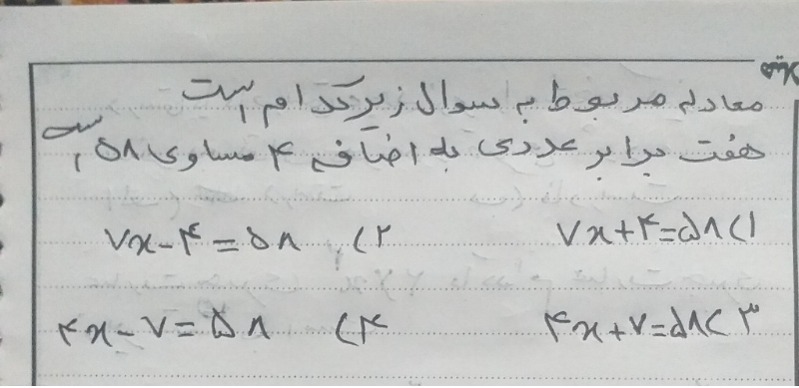 معادله مربوط به سوال زیر کدام است
هفت برابر عددی به اضافه ۴ مساوی ۵۸ است
۱) ۷x+۴=۵۸ ۲) ۷x-۴=۵۸
۳) ۴x+۷=۵۸ ۴) ۴x-۷=۵۸